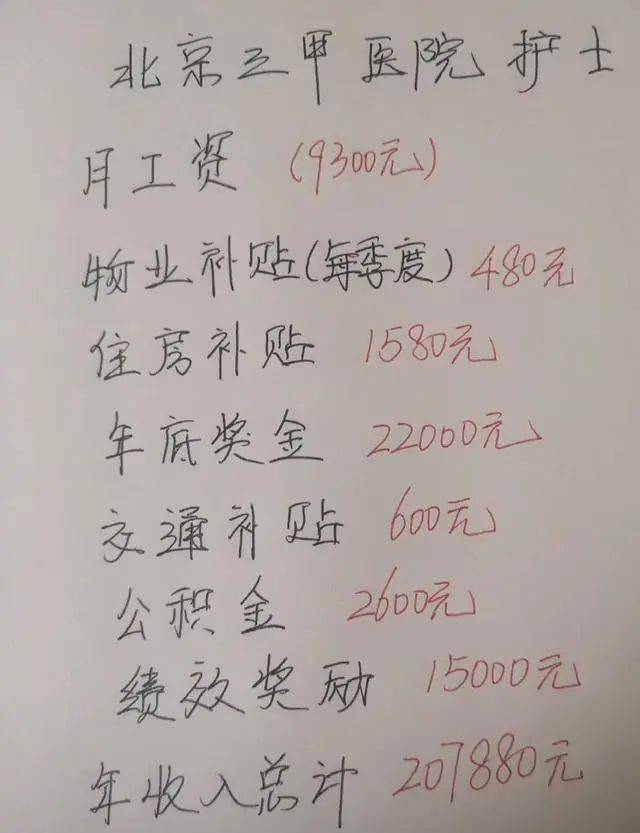 北京三甲医院护士
月工资 (9300元)
物业补贴(每季度) 480元
住房补贴 1580元
年底奖金 22000元
交通补贴 600元
公积金 2600元
绩效奖励 15000元
年收入总计 207880元